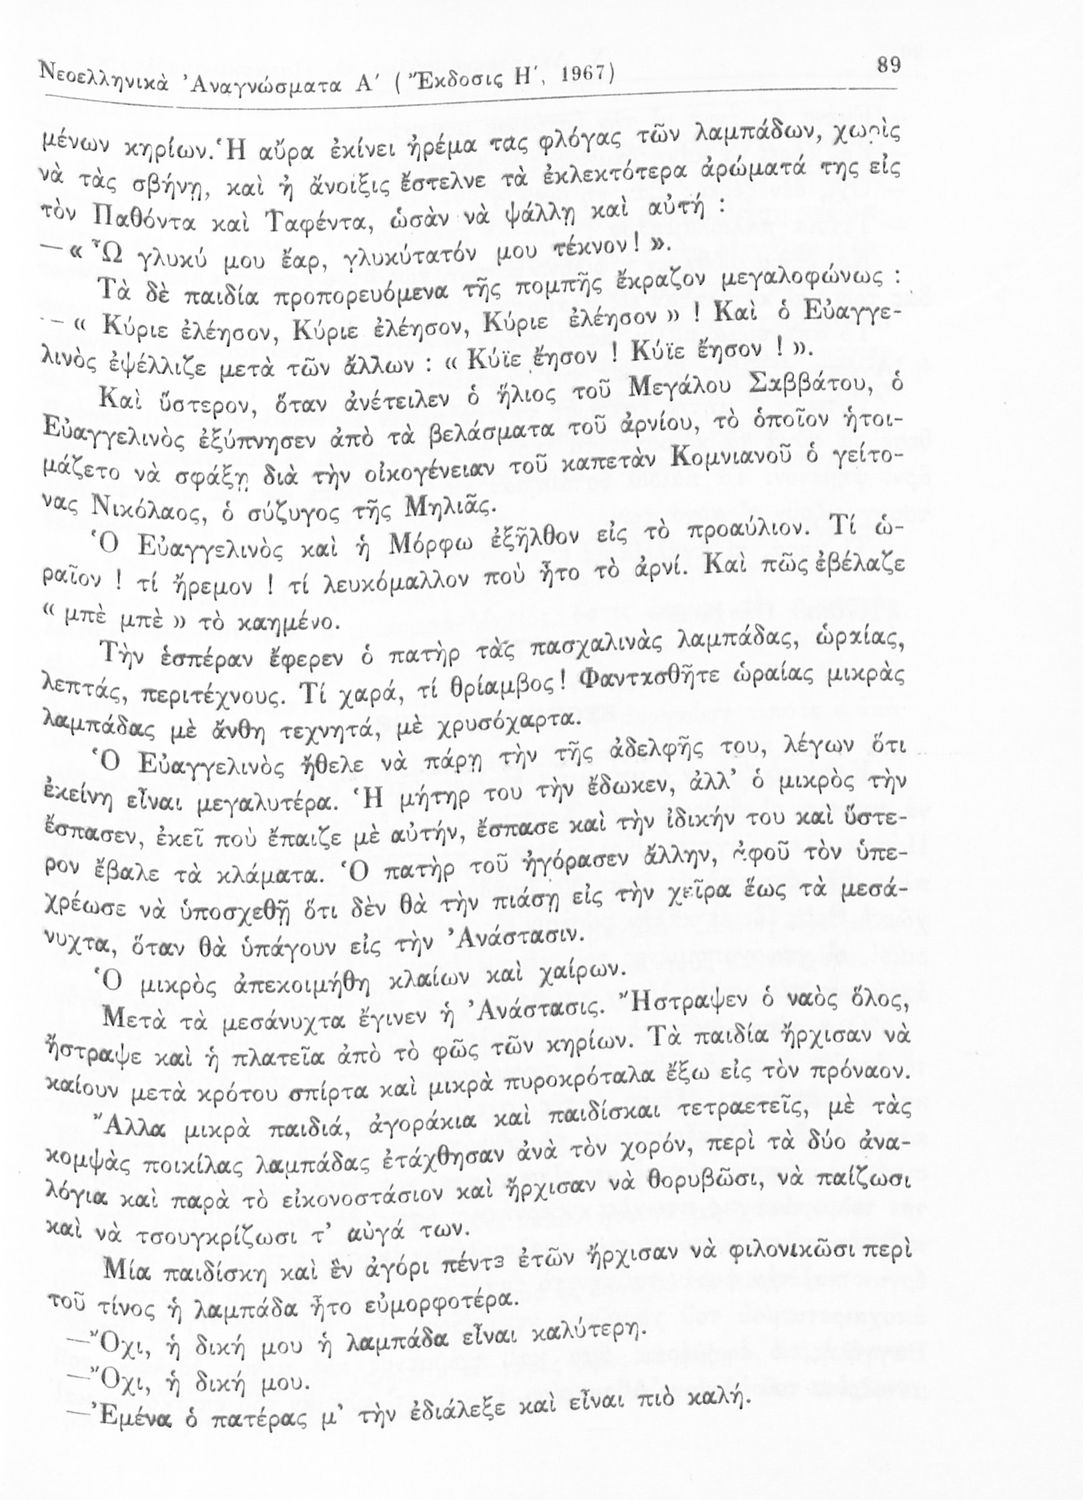 Νεοελληνικὰ Ἀναγνώσματα Α΄ (Ἔκδοσις Η΄, 1967)
89
μένων κηρίων. Ἡ αὔρα ἐκίνει ἠρέμα τας φλόγας τῶν λαμπάδων, χωρὶς
νὰ τὰς σβήνῃ, καὶ ἡ ἄνοιξις ἔστελνε τὰ ἐκλεκτότερα ἀρώματά της εἰς
τὸν Παθόντα καὶ Ταφέντα, ὡσὰν νὰ ψάλλῃ καὶ αὐτή :
— « Ὦ γλυκύ μου ἔαρ, γλυκύτατόν μου τέκνον! ».
Τὰ δὲ παιδία προπορευόμενα τῆς πομπῆς ἔκραζον μεγαλοφώνως :
— « Κύριε ἐλέησον, Κύριε ἐλέησον, Κύριε ἐλέησον » ! Καὶ ὁ Εὐαγγε-
λινὸς ἐψέλλιζε μετὰ τῶν ἄλλων : « Κύϊε ἔησον ! Κύϊε ἔησον ! ».
Καὶ ὕστερον, ὅταν ἀνέτειλεν ὁ ἥλιος τοῦ Μεγάλου Σαββάτου, ὁ
Εὐαγγελινὸς ἐξύπνησεν ἀπὸ τὰ βελάσματα τοῦ ἀρνίου, τὸ ὁποῖον ἡτοι-
μάζετο νὰ σφάξῃ διὰ τὴν οἰκογένειαν τοῦ καπετὰν Κομνιανοῦ ὁ γείτο-
νας Νικόλαος, ὁ σύζυγος τῆς Μηλιᾶς.
Ὁ Εὐαγγελινὸς καὶ ἡ Μόρφω ἐξῆλθον εἰς τὸ προαύλιον. Τί ὡ-
ραῖον ! τί ἤρεμον ! τί λευκόμαλλον ποὺ ἦτο τὸ ἀρνί. Καὶ πῶς ἐβέλαζε
« μπὲ μπὲ » τὸ καημένο.
Τὴν ἑσπέραν ἔφερεν ὁ πατὴρ τὰς πασχαλινὰς λαμπάδας, ὡραίας,
λεπτάς, περιτέχνους. Τί χαρά, τί θρίαμβος! Φαντασθῆτε ὡραίας μικρὰς
λαμπάδας μὲ ἄνθη τεχνητά, μὲ χρυσόχαρτα.
Ὁ Εὐαγγελινὸς ἤθελε νὰ πάρῃ τὴν τῆς ἀδελφῆς του, λέγων ὅτι
ἐκείνη εἶναι μεγαλυτέρα. Ἡ μήτηρ του τὴν ἔδωκεν, ἀλλ’ ὁ μικρὸς τὴν
ἔσπασεν, ἐκεῖ ποὺ ἔπαιζε μὲ αὐτήν, ἔσπασε καὶ τὴν ἰδικήν του καὶ ὕστε-
ρον ἔβαλε τὰ κλάματα. Ὁ πατὴρ τοῦ ἠγόρασεν ἄλλην, ἀφοῦ τὸν ὑπε-
χρέωσε νὰ ὑποσχεθῇ ὅτι δὲν θὰ τὴν πιάσῃ εἰς τὴν χεῖρα ἕως τὰ μεσά-
νυχτα, ὅταν θὰ ὑπάγουν εἰς τὴν Ἀνάστασιν.
Ὁ μικρὸς ἀπεκοιμήθη κλαίων καὶ χαίρων.
Μετὰ τὰ μεσάνυχτα ἔγινεν ἡ Ἀνάστασις. Ἤστραψεν ὁ ναὸς ὅλος,
ἤστραψε καὶ ἡ πλατεῖα ἀπὸ τὸ φῶς τῶν κηρίων. Τὰ παιδία ἤρχισαν νὰ
καίουν μετὰ κρότου σπίρτα καὶ μικρὰ πυροκρόταλα ἔξω εἰς τὸν πρόναον.
Ἄλλα μικρὰ παιδιά, ἀγοράκια καὶ παιδίσκαι τετραετεῖς, μὲ τὰς
κομψὰς ποικίλας λαμπάδας ἐτάχθησαν ἀνὰ τὸν χορόν, περὶ τὰ δύο ἀνα-
λόγια καὶ παρὰ τὸ εἰκονοστάσιον καὶ ἤρχισαν νὰ θορυβῶσι, νὰ παίζωσι
καὶ νὰ τσουγκρίζωσι τ’ αὐγά των.
Μία παιδίσκη καὶ ἓν ἀγόρι πέντε ἐτῶν ἤρχισαν νὰ φιλονικῶσι περὶ
τοῦ τίνος ἡ λαμπάδα ἦτο εὐμορφοτέρα.
—Ὄχι, ἡ δική μου ἡ λαμπάδα εἶναι καλύτερη.
—Ὄχι, ἡ δική μου.
—Ἐμένα ὁ πατέρας μ’ τὴν ἐδιάλεξε καὶ εἶναι πιὸ καλή.